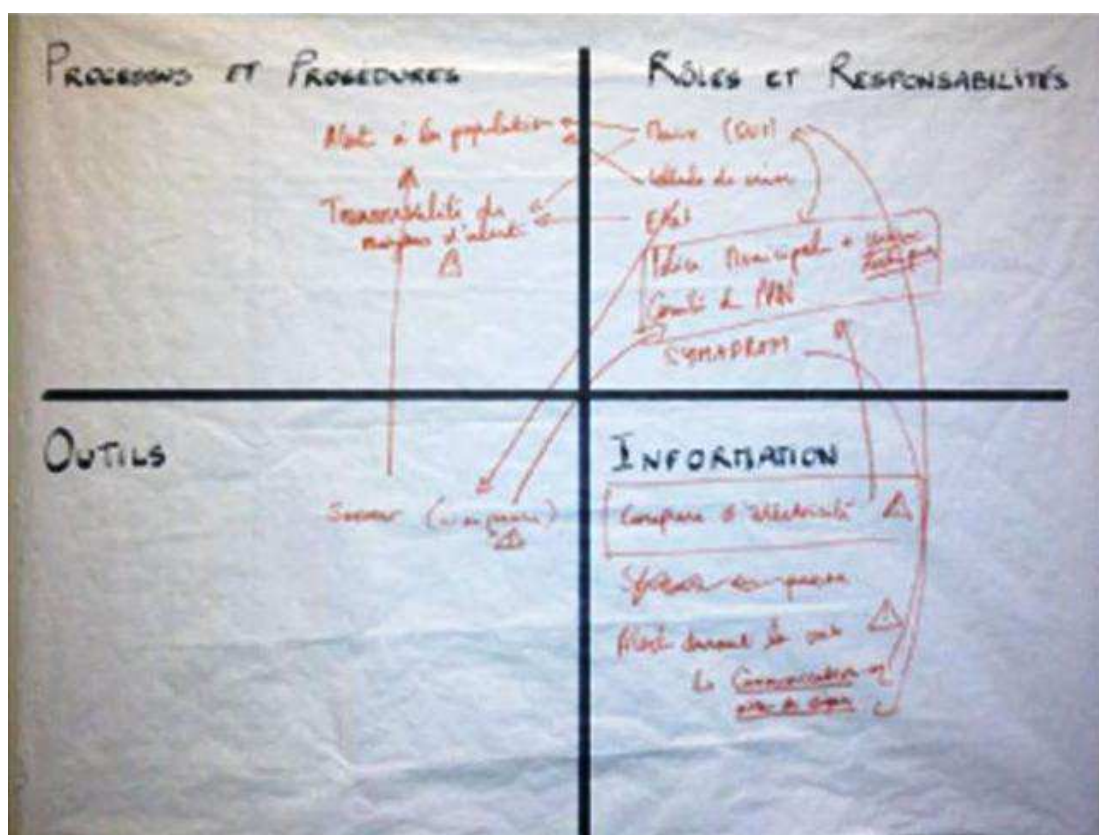 PROCESSUS ET PROCÉDURES
Alert à la population
Transversalité des
moyens d'alerte
RÔLES ET RESPONSABILITÉS
Maire
Cellule de crise
Etat
Police Municipale +
Comité du
SYMADREM
OUTILS
(si en panne)
INFORMATION
Coupure d'électricité
en panne
Alert durant la nuit
Communication